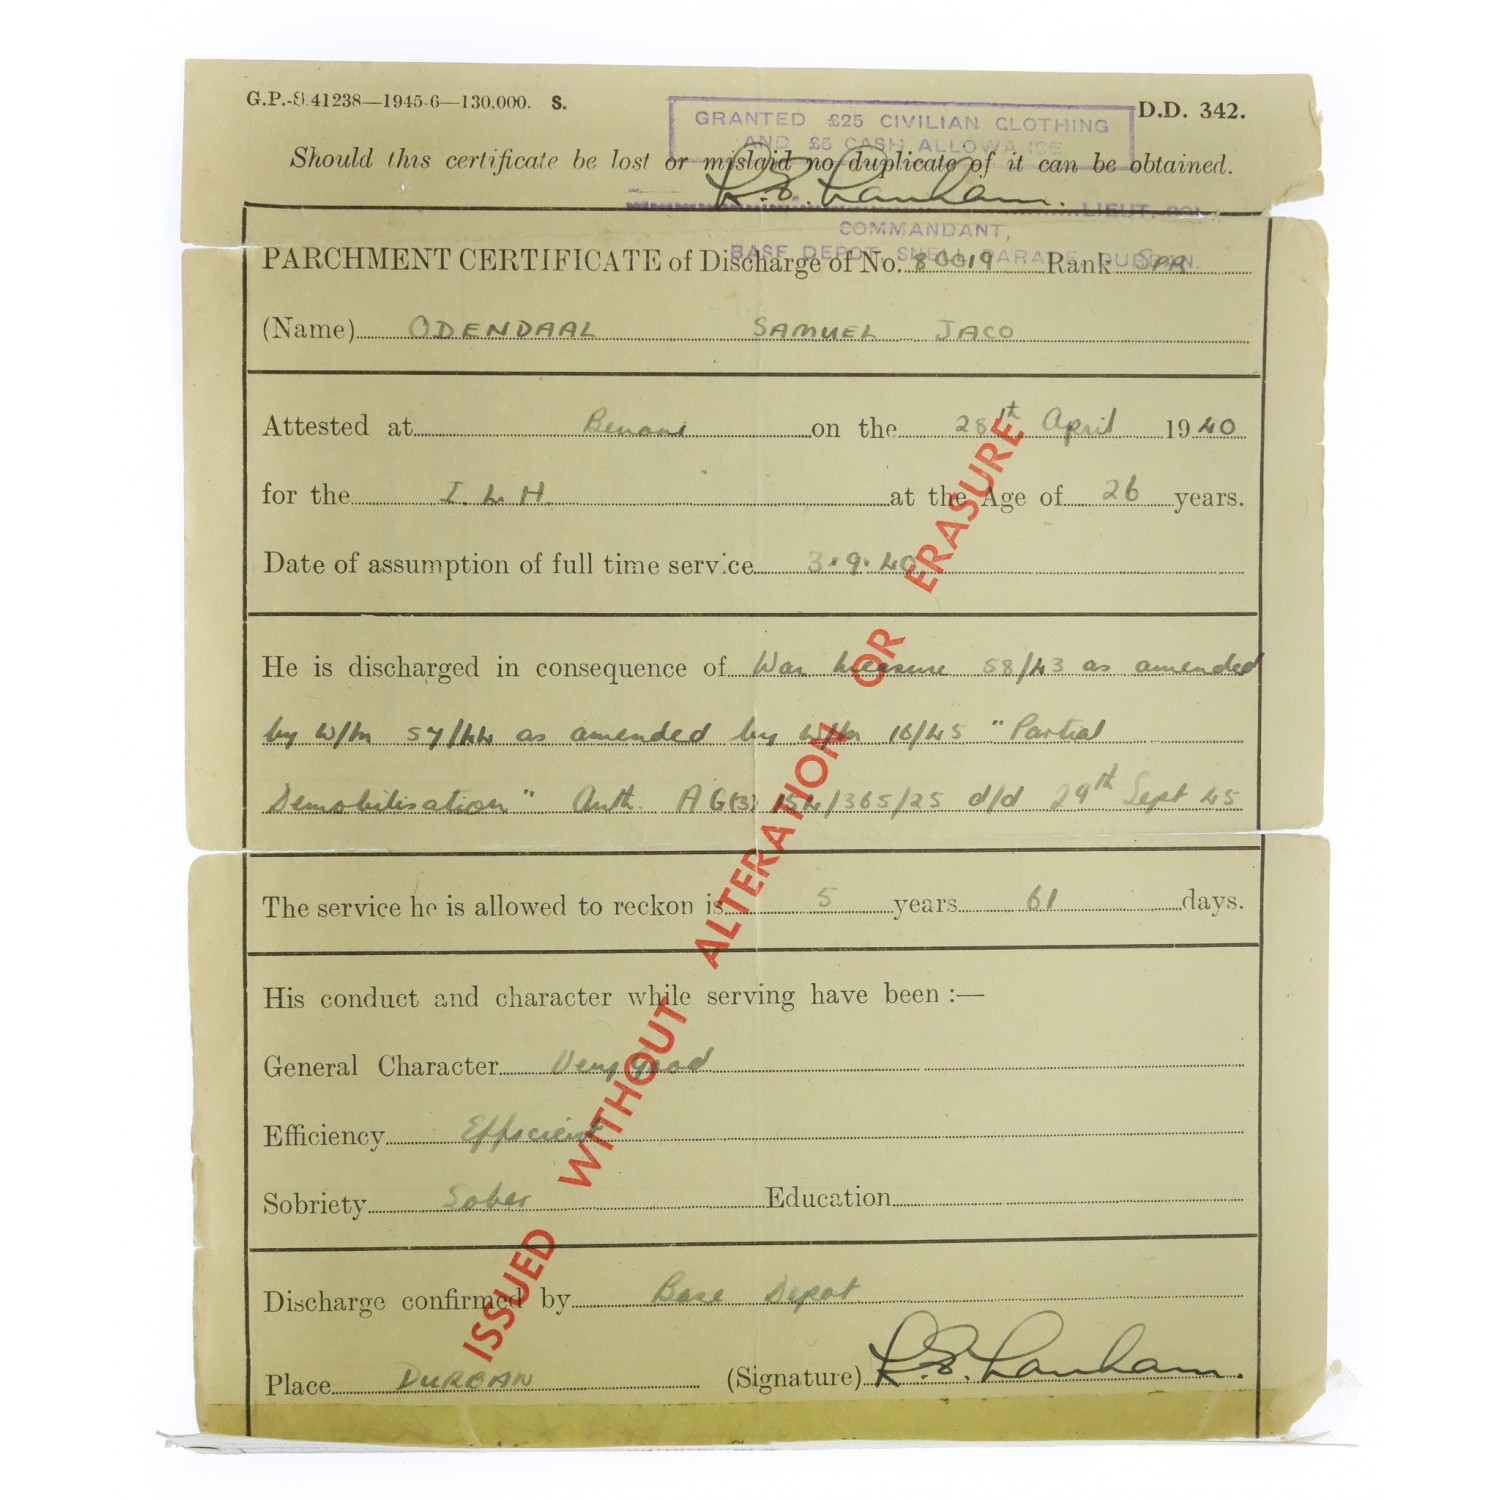 G.P.-S.41238—1945-6—130,000. S.
D.D. 342.
GRANTED £25 CIVILIAN CLOTHING
AND £5 CASH ALLOWANCE
Should this certificate be lost or mislaid no duplicate of it can be obtained.
LIEUT. COL.,
COMMANDANT,
BASE DEPOT, SNELL PARADE, DURBAN.
PARCHMENT CERTIFICATE of Discharge of No. 80019 Rank SPR
(Name) ODENDAAL SAMUEL JACO
Attested at Benoni on the 28th April 1940
for the I L H at the Age of 26 years.
Date of assumption of full time service 3.9.40
He is discharged in consequence of War Measure 58/43 as amended
by W/m 57/44 as amended by W/m 16/45 "Partial
Demobilisation" Auth. AG(3) 154/365/25 d/d 29th Sept 45
The service he is allowed to reckon is 5 years 61 days.
His conduct and character while serving have been :—
General Character Very good
Efficiency Efficient
Sobriety Sober Education
Discharge confirmed by Base Depot
Place DURBAN (Signature)
ISSUED WITHOUT ALTERATION OR ERASURE